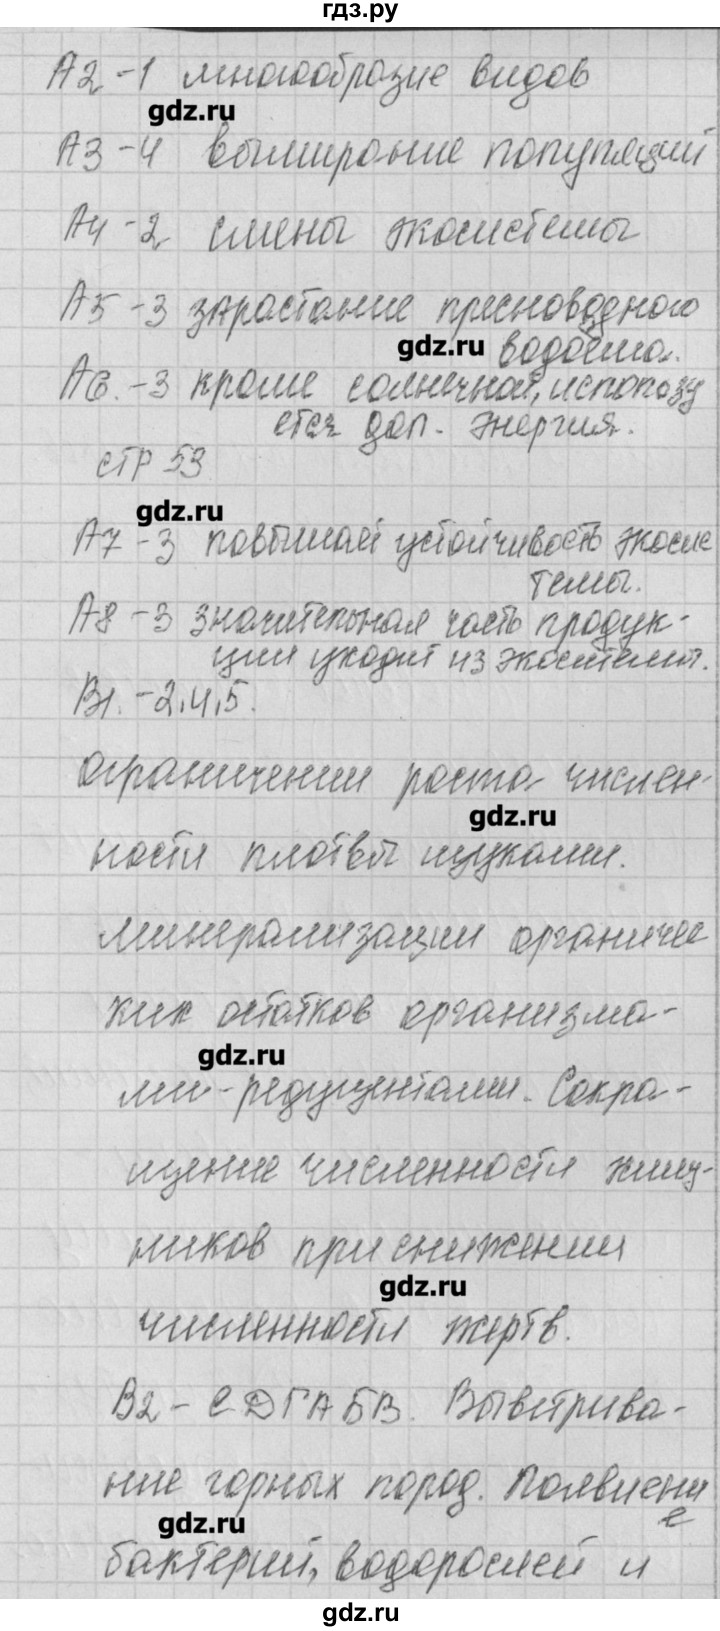 гдз.ру
А2-1 многообразие видов
gdz.ru
А3-4 вымирание популяций
А4-2 смены экосистемы
А5-3 зарастание пресноводного
gdz.ru водоема.
А6.-3 кроме солнечной, использу
ется доп. энергия.
стр 53
gdz.ru
А7-3 повышает устойчивость экосис
темы.
А8-3 значительная часть продук-
ции уходит из экосистемы.
В1.-2,4,5.
ограничении роста числен-
gdz.ru
ности плотвы щуками.
минерализации органичес
ких остатков организма-
gdz.ru
ми-редуцентами. Сокра-
щение численности хищ-
ников при снижении
gdz.ru
численности жертв.
В2-ЕДГАБВ. Выветрива-
ние горных пород. Появлени
е
gdz.ru
бактерий, водорослей и
gdz.ru